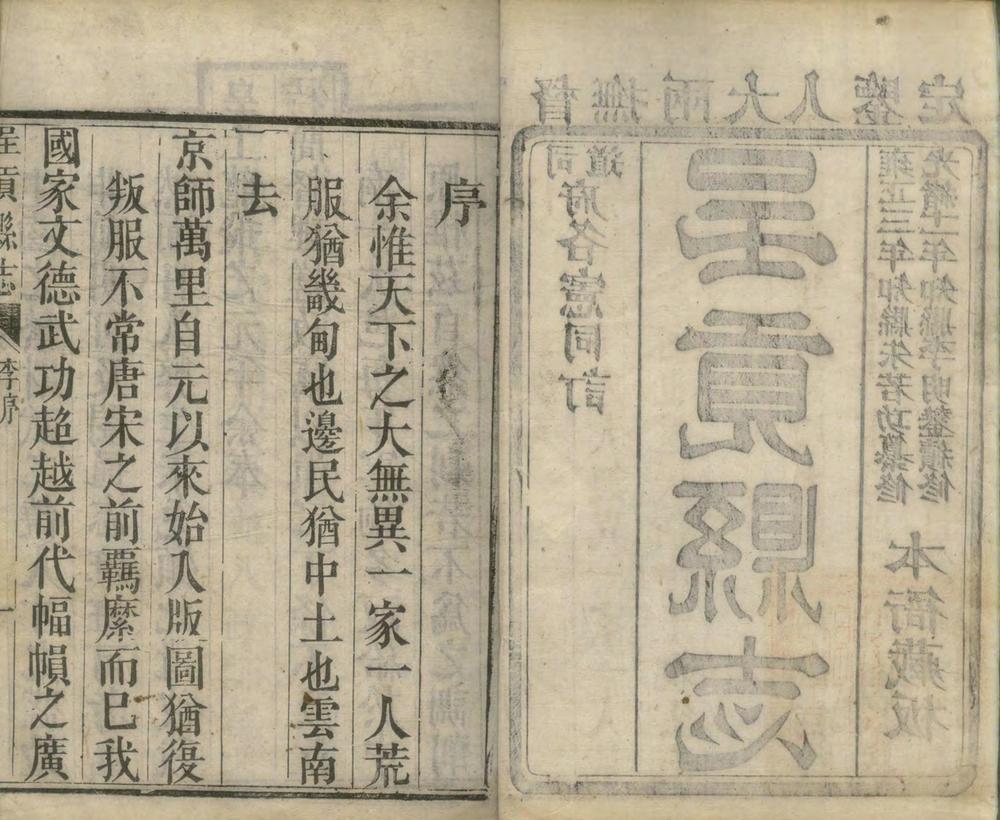 督撫兩大人鑒定
司道府各憲同訂
呈貢縣志
雍正三年知縣朱若功纂修
光緒十一年知縣李明鋆續修
本衙藏板
序
余惟天下之大無異一家一人荒
服猶畿甸也邊民猶中土也雲南
去
京師萬里自元以來始入版圖猶復
叛服不常唐宋之前羈縻而已我
國家文德武功超越前代幅幀之廣
呈貢縣志 李序 一